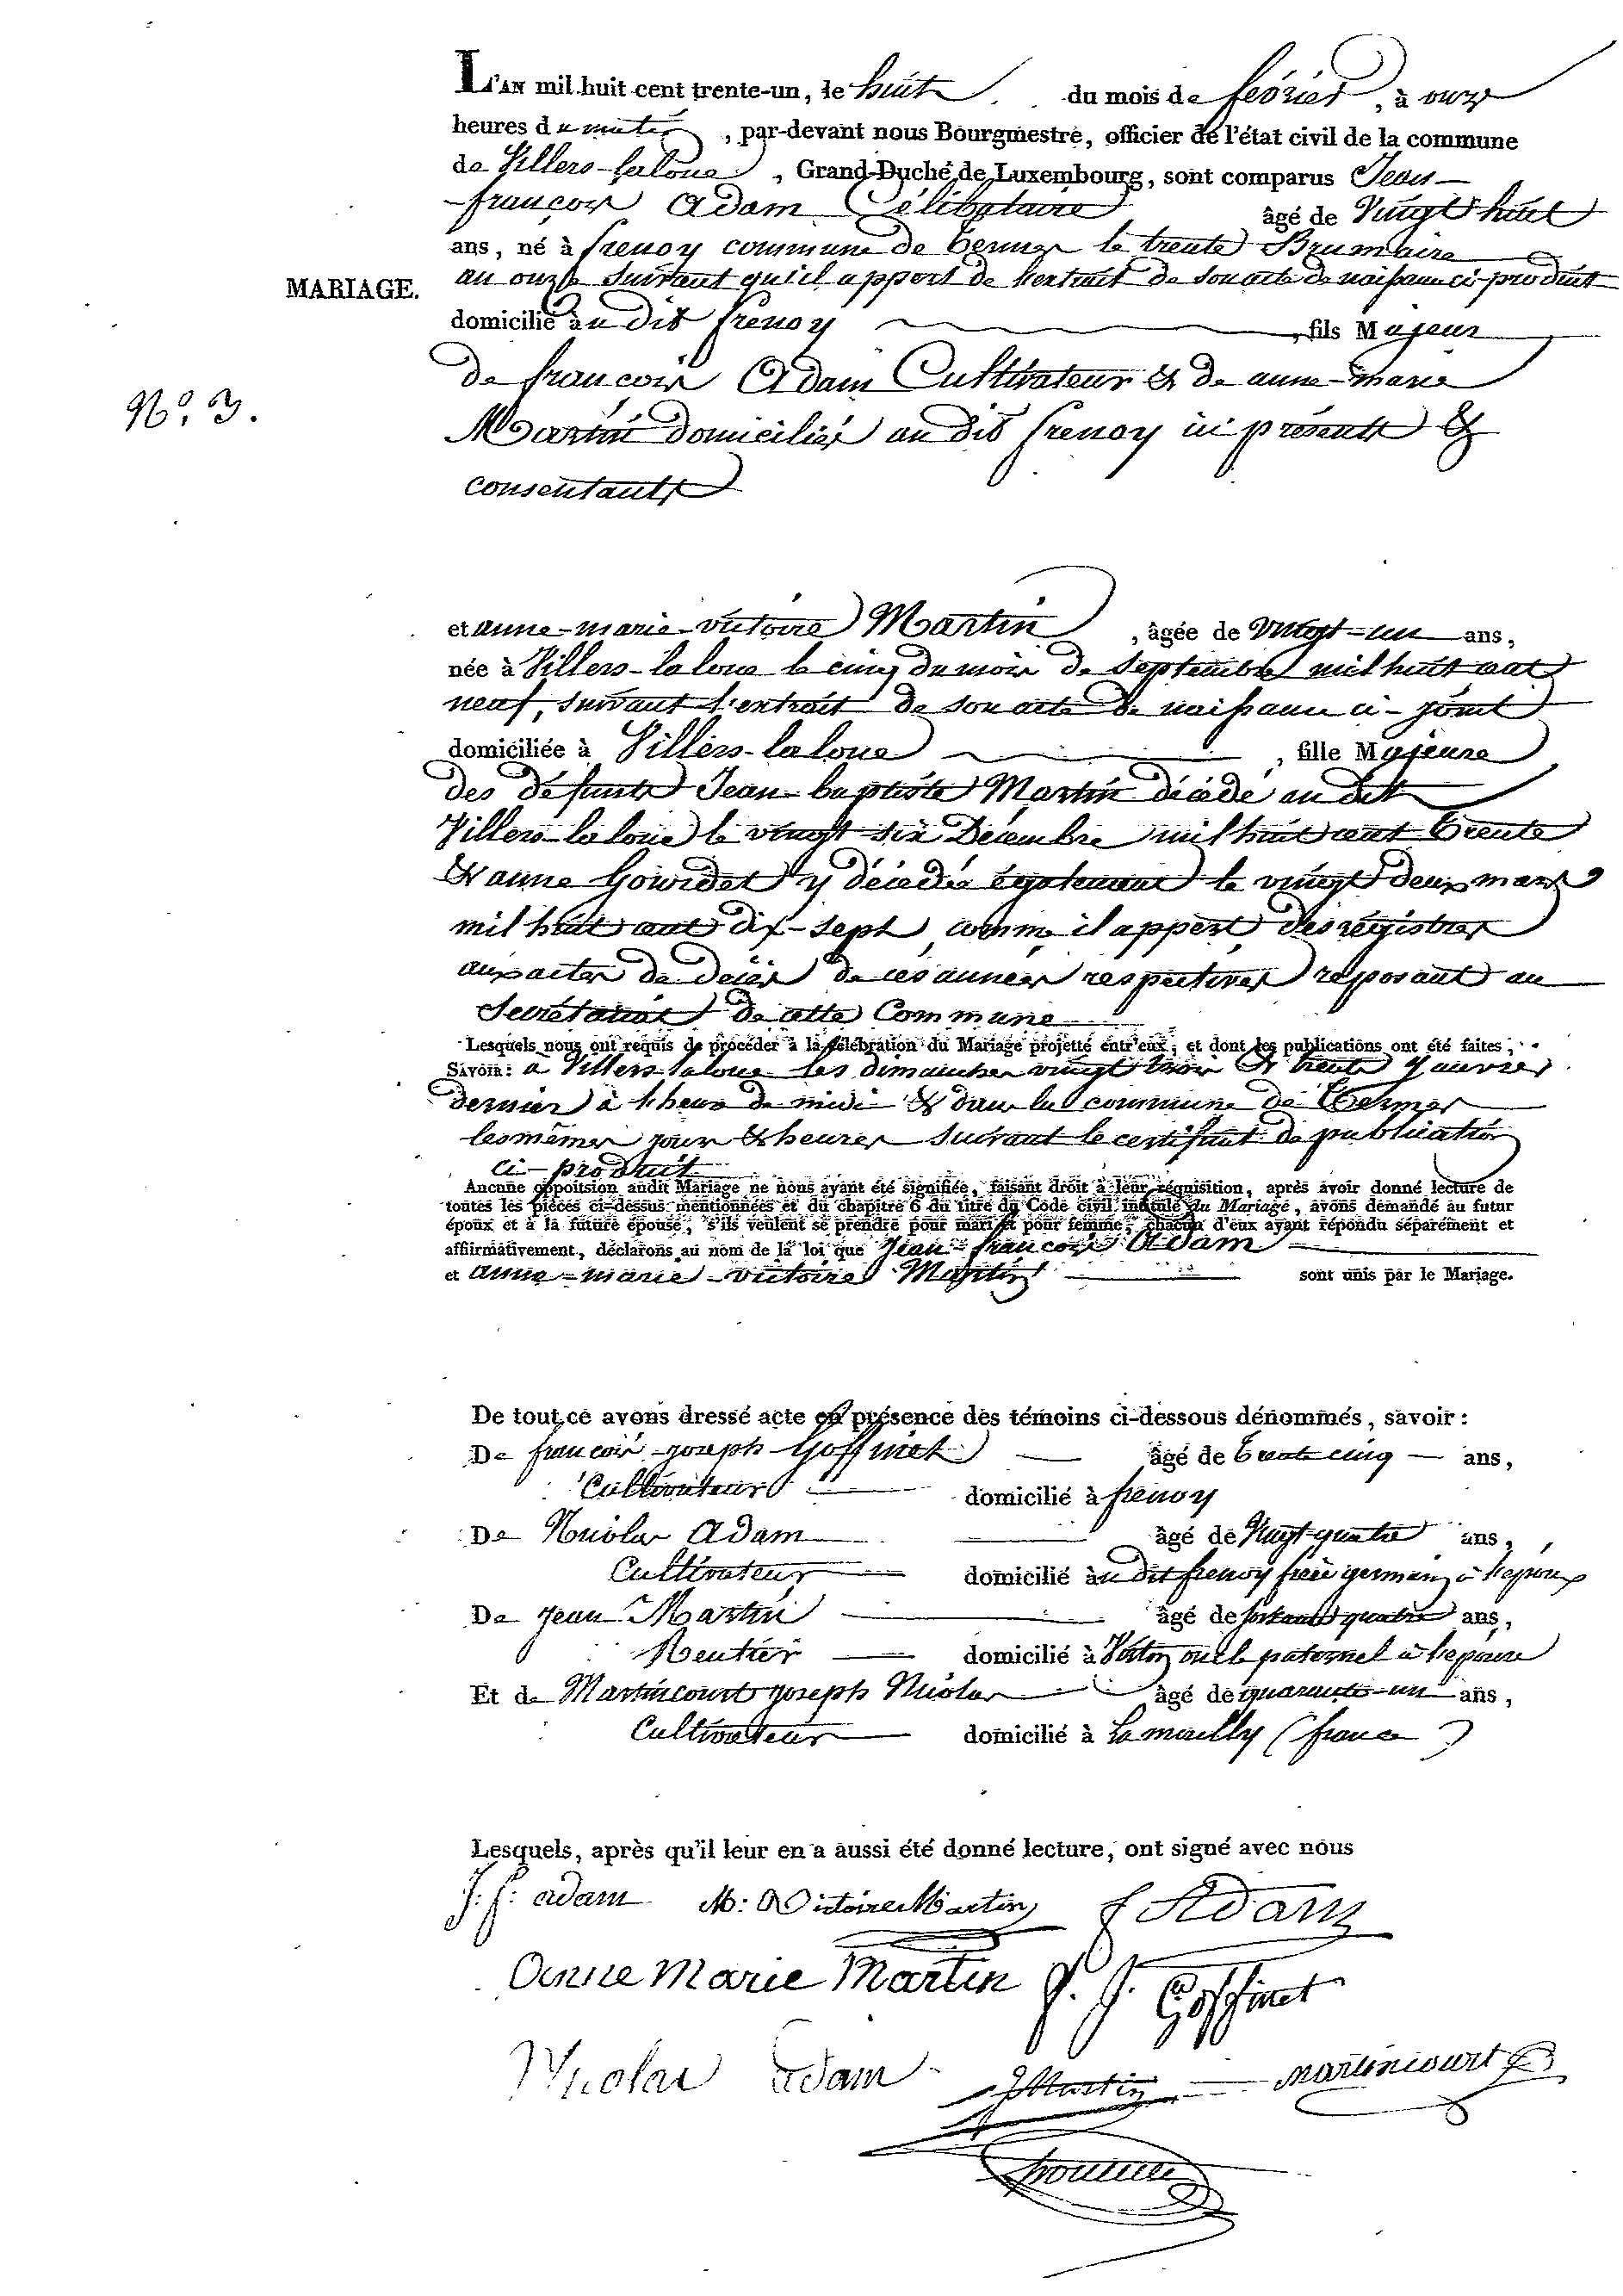 L'AN mil huit cent trente-un, le huit du mois de février, à onze
heures du matin, par-devant nous Bourgmestre, officier de l'état civil de la commune
de Villers-laloue, Grand-Duché de Luxembourg, sont comparus Jean-
françois Adam Célibataire âgé de Vingt huit
ans, né à frenoy commune de termes le trente Brumaire
MARIAGE.
an onze suivant qu'il appert de l'extrait de son acte de naissance ci-produit
domicilié au dit frenoy, fils Majeur
de françois Adam Cultivateur & de anne-marie
N.° 3.
Martin domiciliés au dit frenoy ici présents &
consentants
et anne-marie-victoire Martin, âgée de vingt-un ans,
née à Villers-laloue le cinq du mois de septembre mil huit cent
neuf, suivant l'extrait de son acte de naissance ci-joint
domiciliée à Villers-laloue, fille Majeure
des défunts Jean-baptiste Martin décédé au dit
Villers-laloue le vingt six Décembre mil huit cent trente
& anne Gouvdet y décédée également le vingt deux mars
mil huit cent dix-sept, comme il appert des régistres
aux actes de décès de ces années respectives reposant au
Secrétariat de cette Commune
Lesquels nous ont requis de procéder à la célébration du Mariage projetté entr'eux, et dont les publications ont été faites,
SAVOIR: à Villers-laloue les dimanches vingt trois & trente Janvier
dernier à l'heure de midi & dans la commune de Termes
les mêmes jours & heures suivant le certificat de publication
ci-produit
Aucune oppoitsion audit Mariage ne nous ayant été signifiée, faisant droit à leur réquisition, après avoir donné lecture de
toutes les pièces ci-dessus mentionnées et du chapitre 6 du titre du Code civil intitulé du Mariage, avons demandé au futur
époux et à la future épouse, s'ils veulent se prendre pour mari et pour femme, chacun d'eux ayant répondu séparément et
affiirmativement, déclarons au nom de la loi que Jean-françois Adam
et anne-marie-victoire Martin sont unis par le Mariage.
De tout ce avons dressé acte en présence des témoins ci-dessous dénommés, savoir:
De françois-joseph Goffinet âgé de trente cinq ans,
Cultivateur domicilié à frenoy
De Nicolas Adam âgé de Vingt-quatre ans,
Cultivateur domicilié au dit frenoy frère germain à l'époux
De Jean Martin âgé de soixante quatre ans,
Rentier domicilié à Virton oncle paternel à l'épouse
Et de Martincourt joseph Nicolas âgé de quarante-un ans,
Cultivateur domicilié à Lamouilly (france)
Lesquels, après qu'il leur en a aussi été donné lecture, ont signé avec nous
J: f: adam M: Victoire Martin f Adam
anne marie Martin f. J. Goffinet
Nicolas Adam JMartin martincourt